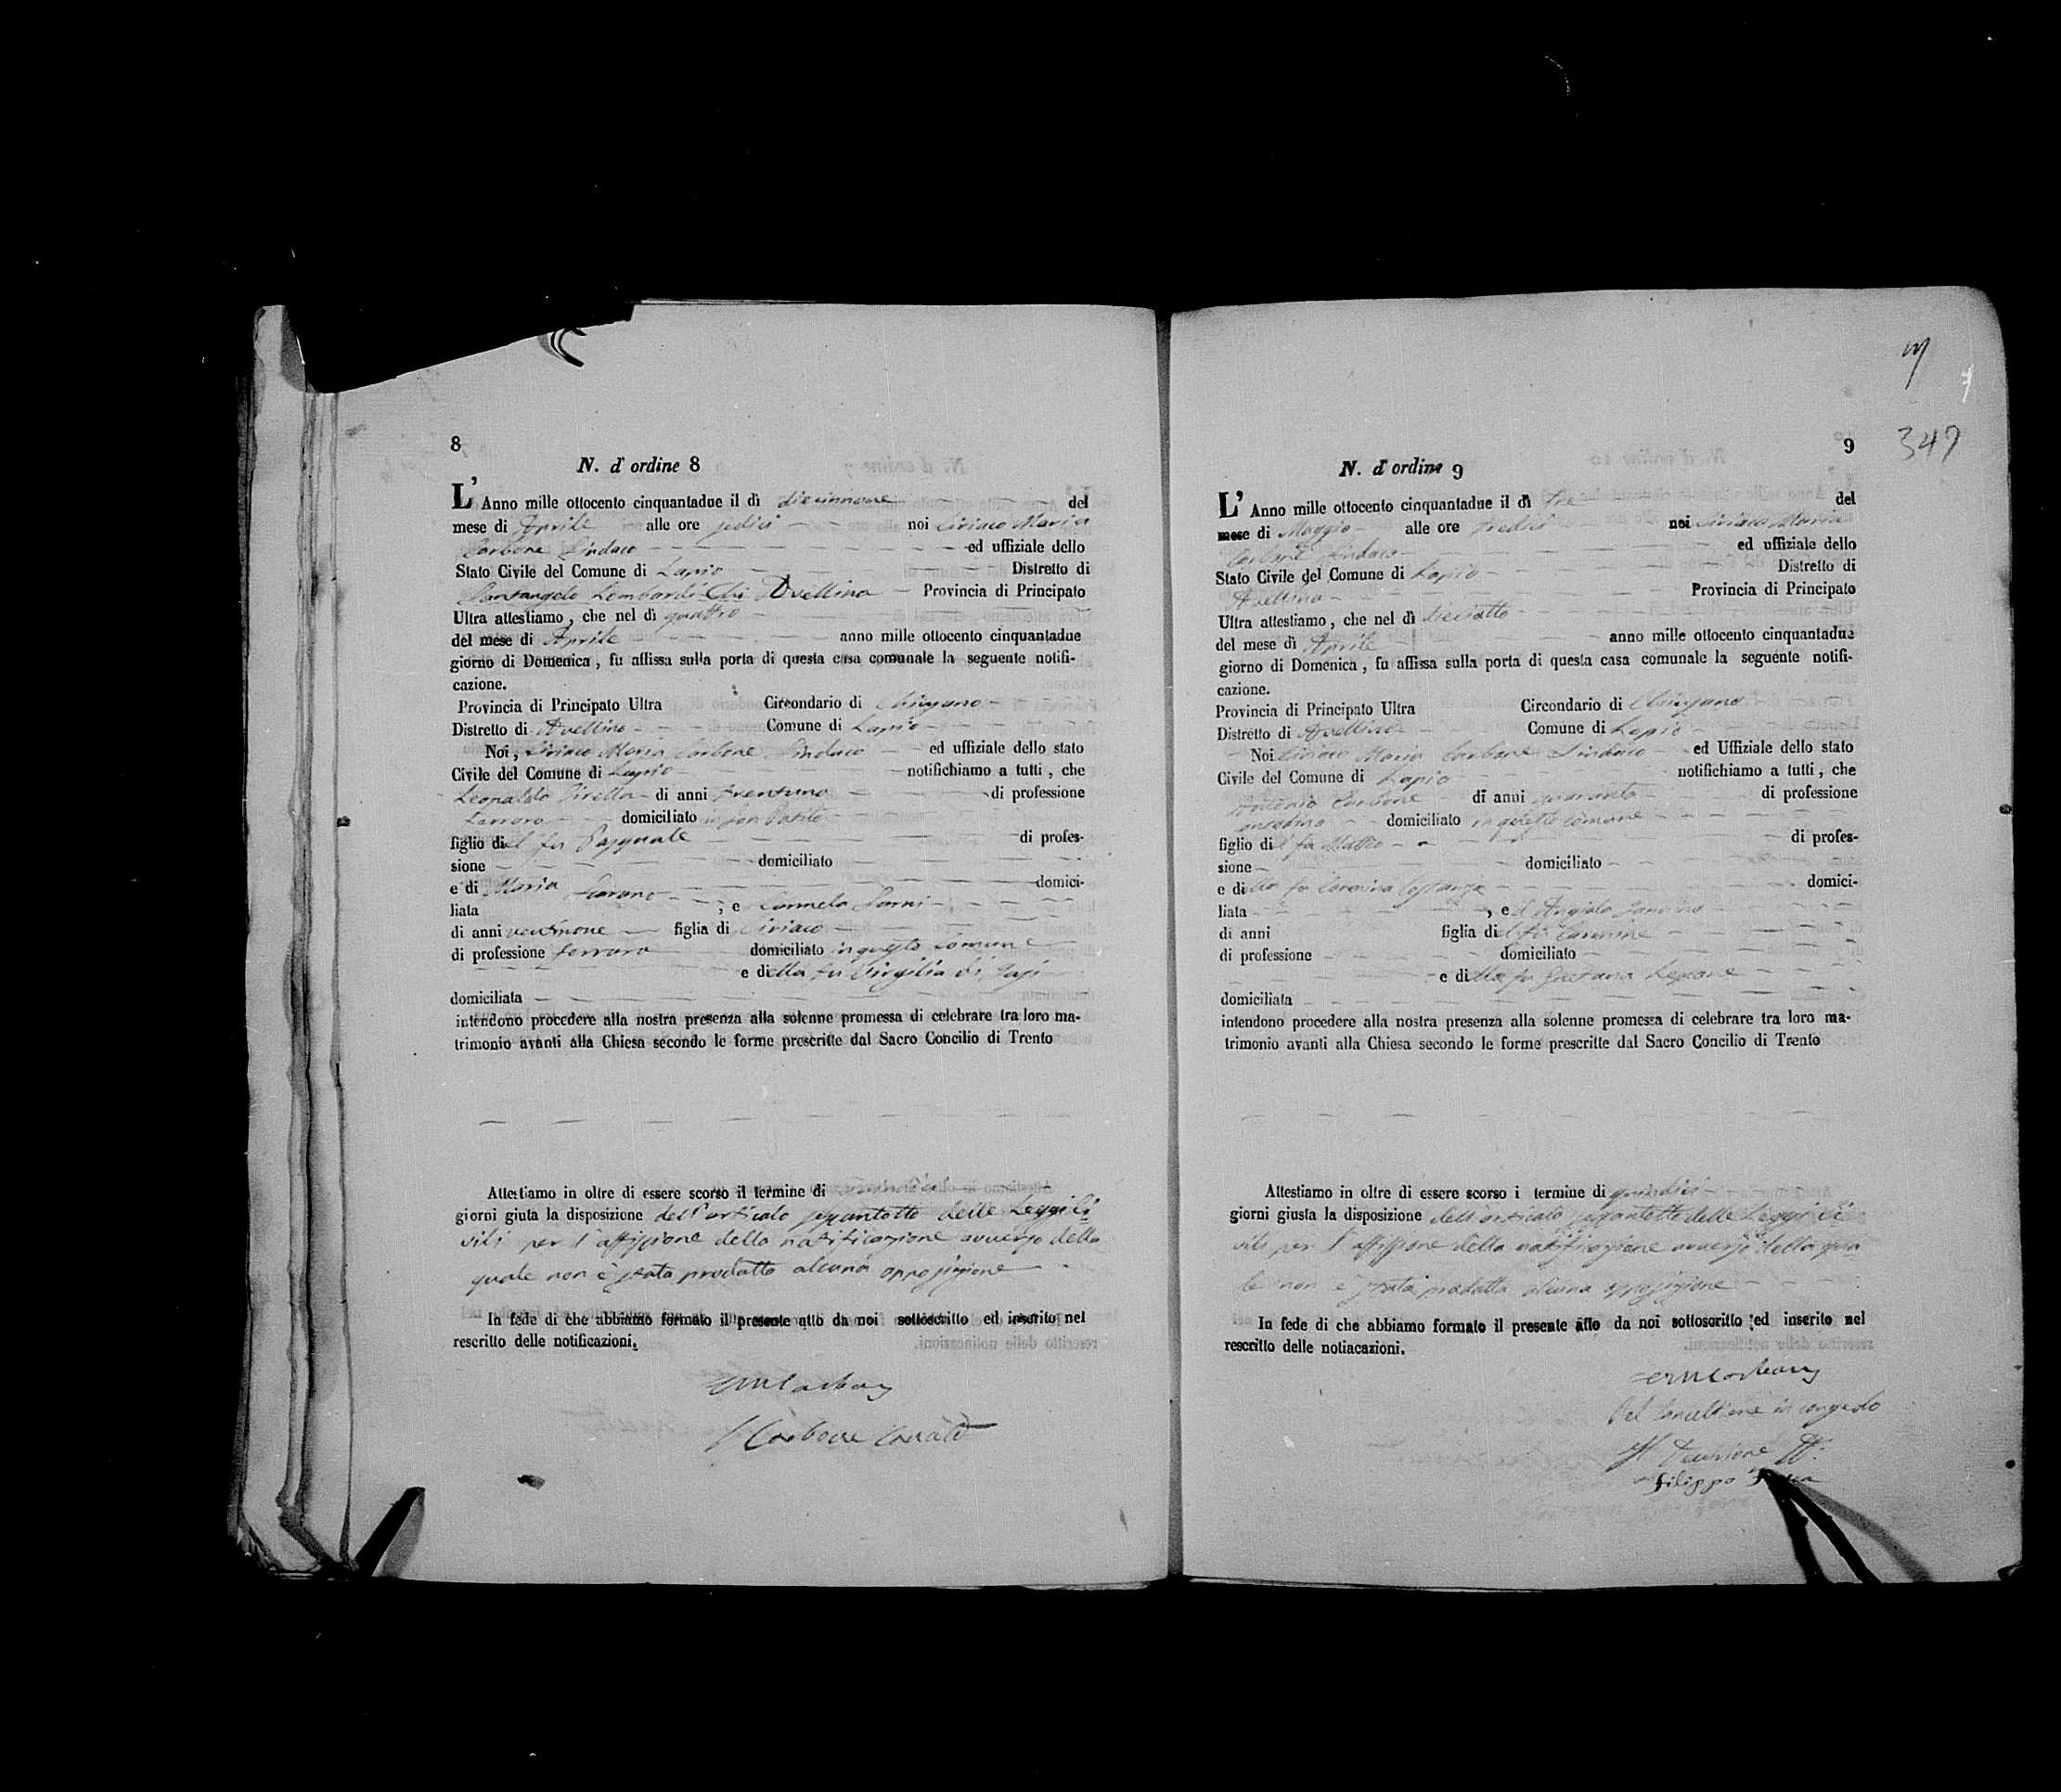 8
N. d' ordine 8
L' Anno mille ottocento cinquantadue il dì diecinnove del
mese di Aprile alle ore sedici noi Ciriaco Maria
Carbone Sindaco ed uffiziale dello
Stato Civile del Comune di Lapio Distretto di
Santangelo Lombardi Avellino Provincia di Principato
Ultra attestiamo, che nel dì quattro
del mese di Aprile anno mille ottocento cinquantadue
giorno di Domenica, fu affissa sulla porta di questa casa comunale la seguente notifi-
cazione.
Provincia di Principato Ultra Circondario di Chiusano
Distretto di Avellino Comune di Lapio
Noi, Ciriaco Maria Carbone Sindaco ed uffiziale dello stato
Civile del Comune di Lapio notifichiamo a tutti, che
Leopoldo di anni trentuno di professione
Ferraro domiciliato in San Potito
figlio del fu Pasquale di profes-
sione domiciliato
e di Maria domici-
liata ; e Carmela
di anni ventinove figlia di Ciriaco
di professione ferraro domiciliato in questo Comune
e di della fu Virgilia di
domiciliata
intendono procedere alla nostra presenza alla solenne promessa di celebrare tra loro ma-
trimonio avanti alla Chiesa secondo le forme prescritte dal Sacro Concilio di Trento
Attestiamo in oltre di essere scorso il termine di
giorni giuta la disposizione dell'articolo sessantotto delle Leggi Ci
vili per l'affissione della notificazione avverso della
quale non è stata prodotta alcuna opposizione
In fede di che abbiamo formato il presente atto da noi sottoscritto ed inserito nel
rescritto delle notificazioni.
Carbone
9
347
N. d' ordine 9
L' Anno mille ottocento cinquantadue il dì tre del
mese di Maggio alle ore tredici noi Ciriaco Maria
Carbone Sindaco ed uffiziale dello
Stato Civile del Comune di Lapio Distretto di
Avellino Provincia di Principato
Ultra attestiamo, che nel dì dieciotto
del mese di Aprile anno mille ottocento cinquantadue
giorno di Domenica, fu affissa sulla porta di questa casa comunale la seguente notifi-
cazione.
Provincia di Principato Ultra Circondario di Chiusano
Distretto di Avellino Comune di Lapio
Noi Ciriaco Maria Carbone Sindaco ed Uffiziale dello stato
Civile del Comune di Lapio notifichiamo a tutti, che
Antonio Carbone di anni quaranta di professione
contadino domiciliato in questo Comune
figlio del fu Matteo di profes-
sione domiciliato
e di della fu Carmina Costanza domici-
liata , e d' Angiola
di anni figlia del fu Carmine
di professione domiciliato
e di della fu Gaetana
domiciliata
intendono procedere alla nostra presenza alla solenne promessa di celebrare tra loro ma-
trimonio avanti alla Chiesa secondo le forme prescritte dal Sacro Concilio di Trento
Attestiamo in oltre di essere scorso i termine di quindici
giorni giusta la disposizione dell'articolo sessantotto delle Leggi Ci
vili per l'affissione della notificazione avverso della qua
le non è stata prodotta alcuna opposizione
In fede di che abbiamo formato il presente atto da noi sottoscritto ed inserito nel
rescritto delle notiacazioni.
Pel Cancelliere in congedo
Il Decurione
Filippo